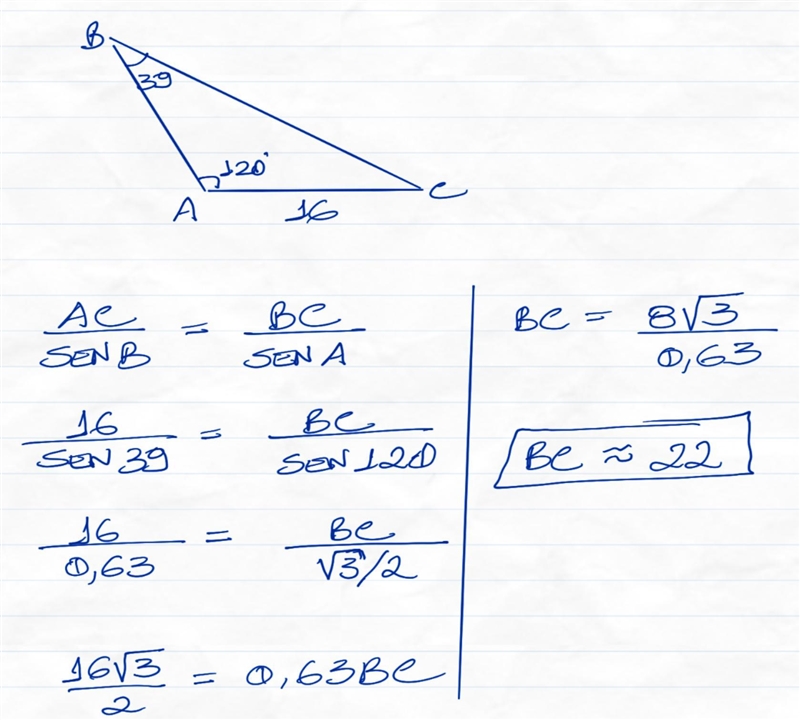 B
39
120°
A
C
16
AC/SEN B = BC/SEN A
16/SEN 39 = BC/SEN 120
16/0,63 = BC/√3/2
16√3/2 = 0,63BC
BC = 8√3/0,63
BC ≈ 22